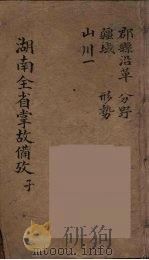 郡縣沿革 分野
疆域 形勢
山川一
湖南全省掌故備攷 子